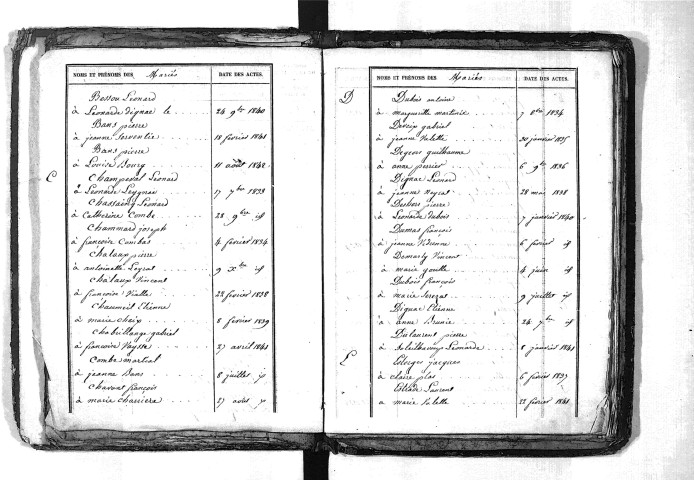 NOMS ET PRÉNOMS DES Mariés DATE DES ACTES.
Bossou Léonard
à Léonarde dignac le 24 9bre 1840
Bans pierre
à jeanne 18 février 1841
Bans pierre
à Louise Bourg 11 août 1842
C
Champeval Léonard
à Léonarde Leygnac 17 7bre 1833
Chassaing Léonard
à Catherine Combe 28 9bre id
Chammard joseph
à françoise Combas 4 février 1834
Chataur pierre
à antoinette Leyrat 9 Xbre id
Chataur Vincent
à françoise Vialle 22 février 1838
Chaumeil Etienne
à marie Chaix 8 février 1839
Chabrillange gabriel
à françoise 27 avril 1841
Combe martial
à jeanne Bans 8 juillet id
Chavant françois
à marie Charriere 27 août
NOMS ET PRÉNOMS DES Mariés DATE DES ACTES.
D
Dubois antoine
à marguerite martinie 7 8bre 1834
gabriel
à jeanne Valette 20 janvier 1835
Degeors guilhaume
à anne perrier 6 9bre 1836
Dignac Léonard
à jeanne 28 mai 1838
pierre
à Léonarde dubois 7 janvier 1840
Dumas françois
à jeanne 6 février id
Demarty Vincent
à marie 4 juin id
Dubois françois
à marie 9 juillet id
Dignac Etienne
à anne 24 7bre id
Dulaurent pierre
à Léonarde 8 janvier 1841
E
Estorges jacques
à claire plas 6 février 1837
Estrade Laurent
à marie Valette 22 février 1841